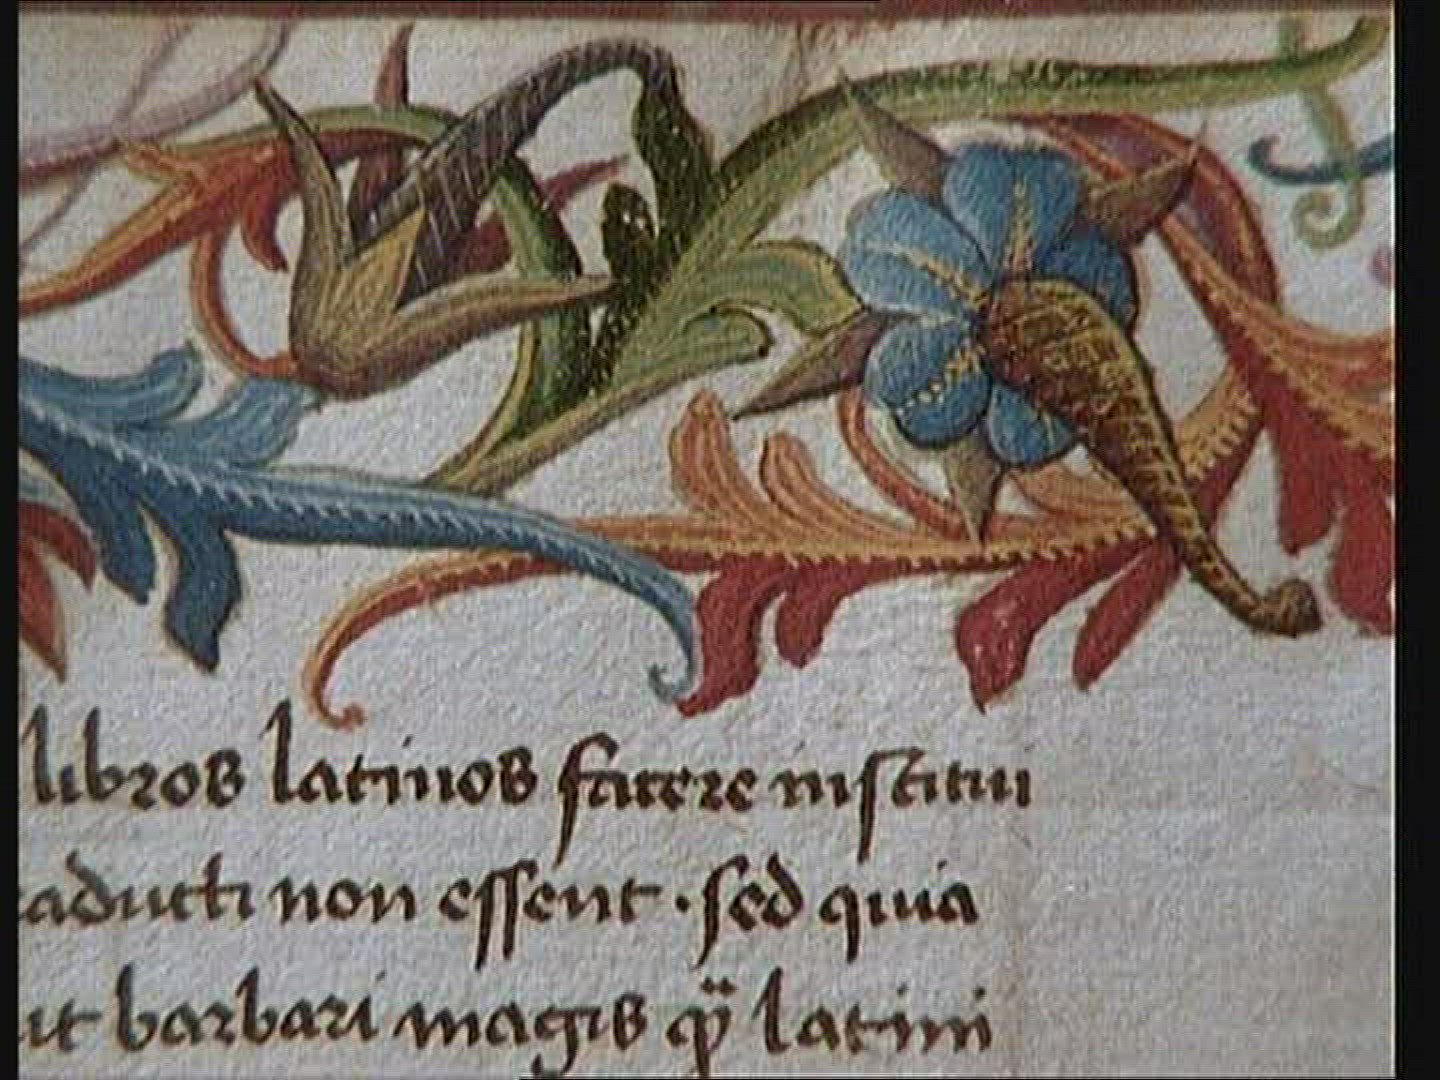 libros latinos facere institui
aducti non essent · sed quia
it barbari magis q̈ latini